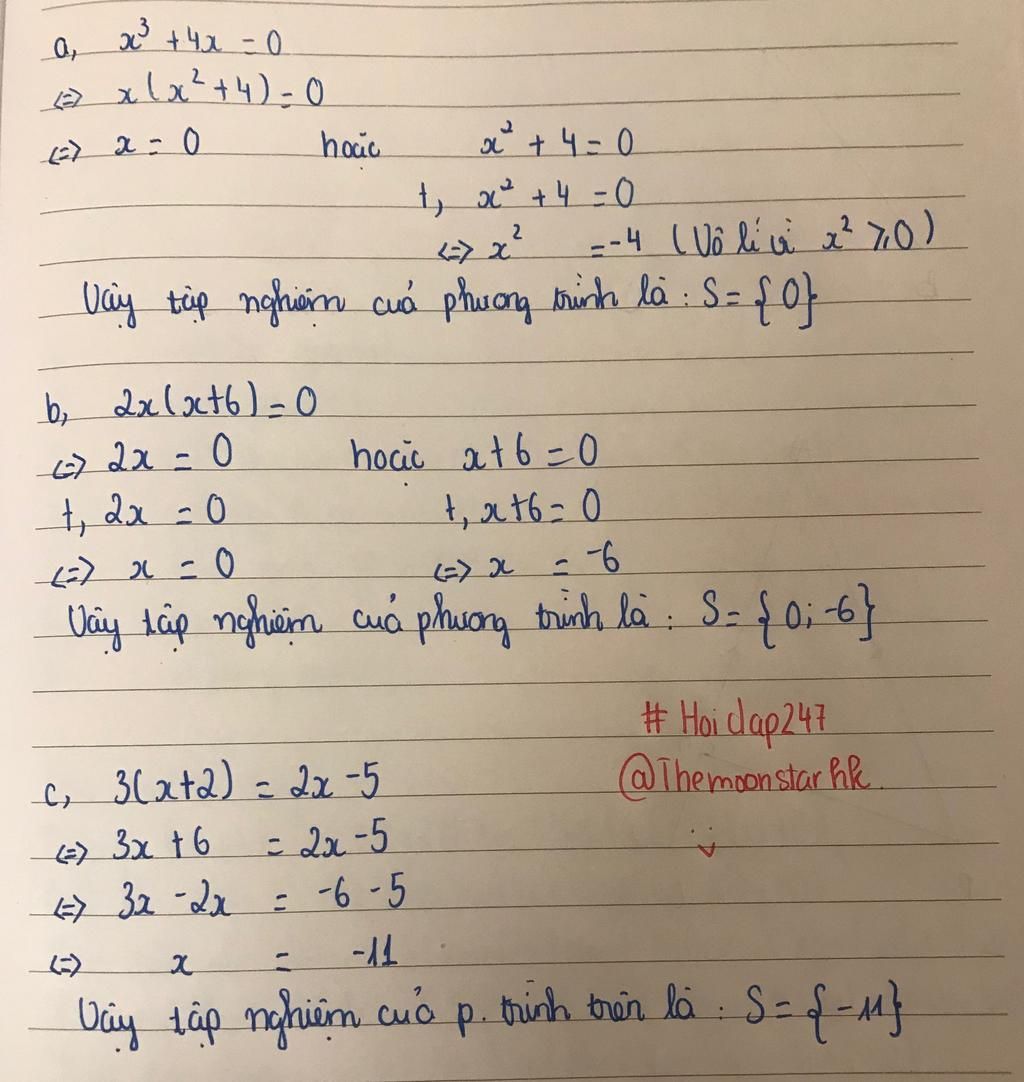 a, x³ + 4x = 0
<=> x(x² + 4) = 0
<=> x = 0 hoặc x² + 4 = 0
+, x² + 4 = 0
<=> x² = -4 (Vô lí vì x² ⩾ 0)
Vậy tập nghiệm của phương trình là : S = {0}
b, 2x(x+6) = 0
<=> 2x = 0 hoặc x+6 = 0
+, 2x = 0 +, x+6 = 0
<=> x = 0 <=> x = -6
Vậy tập nghiệm của phương trình là : S = {0; -6}
# Hoidap247
@Themoonstarhk.
c, 3(x+2) = 2x - 5
<=> 3x + 6 = 2x - 5
<=> 3x - 2x = -6 - 5
<=> x = -11
Vậy tập nghiệm của p. trình trên là : S = {-11}